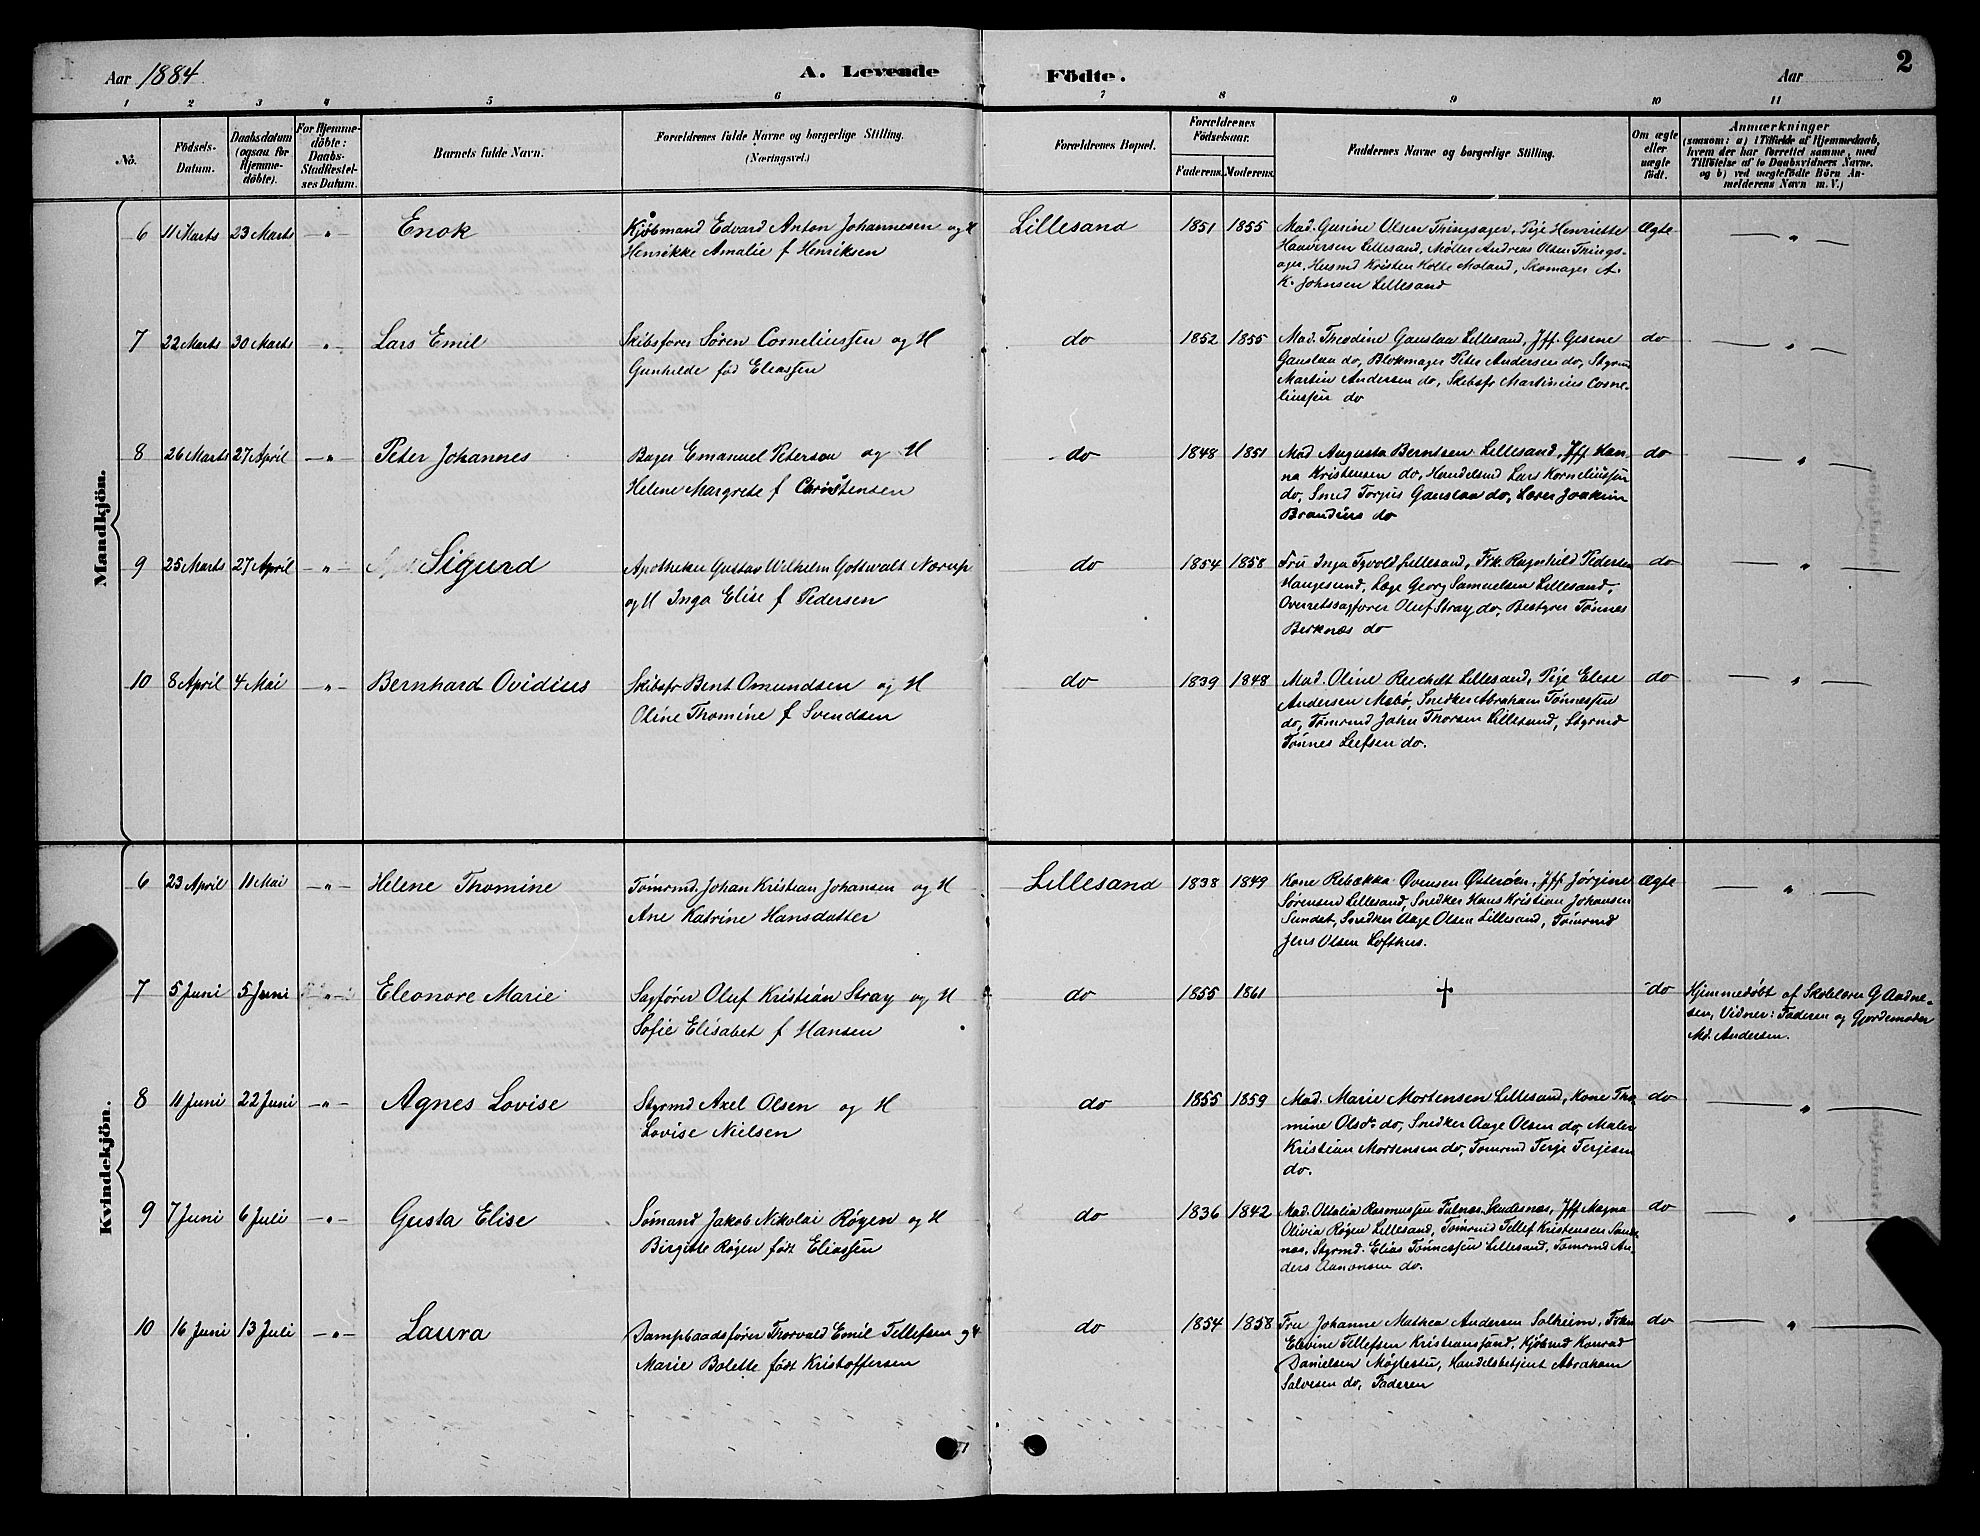 Aar 1884.
A. Levende Födte.
Aar
2
1 2 3 4 5 6 7 8 9 10 11
No.
Födsels-
Datum.
Daabsdatum
(ogsaa for
Hjemme-
döbte).
For Hjemme-
döbte:
Daabs-
Stadfestel-
ses Datum.
Barnets fulde Navn.
Forældrenes fulde Navne og borgerlige Stilling.
(Næringsvei.)
Forældrenes Bopæl.
Forældrenes
Födselsaar.
Faderens. Moderens.
Faddernes Navne og borgerlige Stilling.
Om ægte
eller
uægte
født.
Anmærkninger
(saasom: a) i Tilfælde af Hjemmedaab,
hvem der har forrettet samme, med
Tilföielse af to Daabsvidners Navne.
og b) ved uægtefödte Börn An-
melderens Navn m. V.)
Mandkjön.
6 11 Marts 23 Marts - " - Enok
Kjøbmand Edvard Anton Johannesen og H
Henrikke Amalie f Henriksen
Lillesand 1851 1855
Mad. Gurine Olsen Thingsager, Pige Henriette
Haaversen Lillesand, Møller Andreas Olsen Things-
ager, Husmd Kristen Holte Moland, Skomager A.
K. Johnsen Lillesand
Ægte — " —
7 22 Marts 30 Marts - " - Lars Emil
Skibsfører Søren Corneliussen og H
Gunhilde fød Eliassen
do 1852 1855
Mad. Theodine Gauslaa Lillesand, Jfr Gesine
Gauslaa do, Blokmager Peter Andersen do, Styrm
Martin Andersen do, Skibsfr Martinius Corne-
liussen do
do — " —
8 26 Marts 27 April - " - Peter Johannes
Bager Emanuel Peterson og H
Helene Margrete f Christensen
do 1848 1851
Mad Augusta Berntsen Lillesand, Jfr Han-
na Kristensen do, Handelsmd Lars Korneliussen
do, Smed Torjus Gauslaa do, Lærer Joakim
Brandius do
do — " —
9 25 Marts 27 April - " - Sigurd
Apotheker Gustav Wilhelm Gottwalt Nærup
og H Inga Elise f Pedersen
do 1854 1858
Fru Inga Tyvold Lillesand, Frk. Ragnhild Pedersen
Haugesund, Læge Georg Samuelsen Lillesand,
Overretssagfører Oluf Stray do, Bestyrer Tønnes
Berknæs do
do — " —
10 8 April 4 Mai - " - Bernhard Ovidius
Skibsfr Bent Omundsen og H
Oline Thomine f Svendsen
do 1839 1848
Mad. Oline Reichelt Lillesand, Pige Elise
Andersen Mæbø, Snedker Abraham Tønnessen
do, Tømrmd John Thorsen Lillesand, Styrmd
Tønnes Leefsen do.
do — " —
Kvindekjön.
6 23 April 11 Mai - " - Helene Thomine
Tømrmd. Johan Kristian Johansen og H
Ane Katrine Hansdatter
Lillesand 1838 1849
Kone Rebækka Ovensen Østerøen, Jfr Jørgine
Sørensen Lillesand, Snedker Hans Kristian Johansen
Sundet, Snedker Aage Olsen Lillesand, Tømrmd
Jens Olsen Lofthus.
Ægte — " —
7 5 Juni 5 Juni - " - Eleonore Marie
Sagfører Oluf Kristian Stray og H
Sofie Elisabet f Hansen
do 1855 1861
†
do
Hjemmedøbt af Skolelærer G Aadne-
sen, Vidner: Faderen og Gjordemoder
Md. Andersen.
8 11 Juni 22 Juni - " - Agnes Lovise
Styrmd Axel Olsen og H
Lovise Nielsen
do 1855 1859
Mad. Marie Mortensen Lillesand, Kone Tho-
mine Olsdr do, Snedker Aage Olsen do, Maler
Kristian Mortensen do, Tømrmd Terje Terjesen
do.
do — " —
9 7 Juni 6 Juli - " - Gusta Elise
Sømand Jakob Nikolai Røgen og H
Birgitte Røgen født Eliassen
do 1836 1842
Mad. Ottalia Rasmussen Falnæs Skudesnæs, Jfr Magna
Olivia Røgen Lillesand, Tømrmd Tellef Kristensen Sand-
næs, Styrmd. Elias Tønnessen Lillesand, Tømrmd An-
ders Aanonsen do.
do — " —
10 16 Juni 13 Juli - " - Laura
Dampbaadsfører Thorvald Emil Tellefsen og H
Marie Bolette født Kristoffersen
do 1854 1858
Fru Johanne Mathea Andersen Solheim, Frøken
Elevine Tellefsen Kristianssand, Kjøbmd Konrad
Danielsen Møglestu, Handelsbetjent Abraham
Salvesen do, Faderen
do — " —